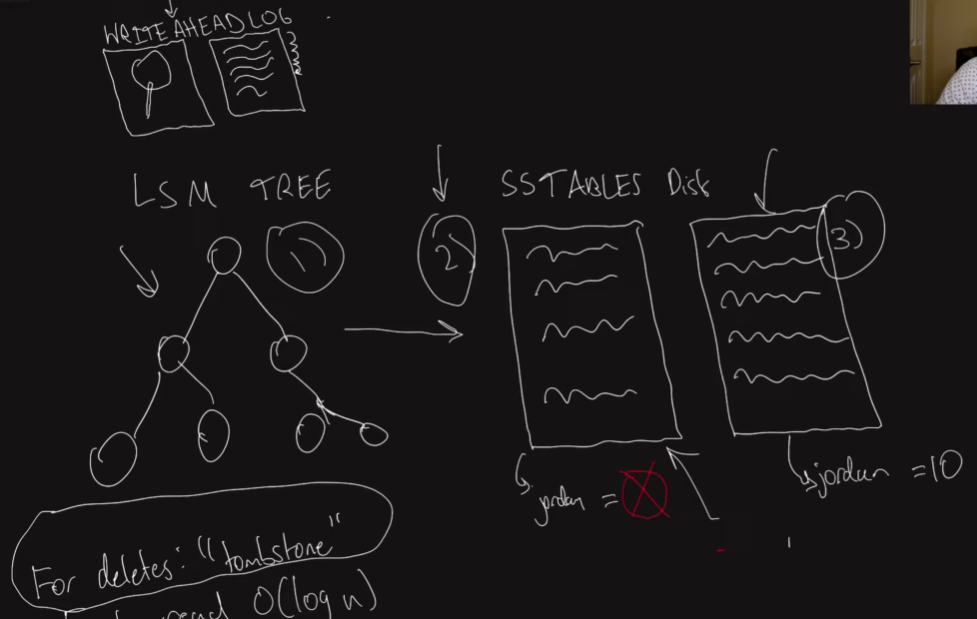 WRITE AHEAD LOG
LSM TREE
1)
2)
SSTABLES Disk
3)
jordan =
jordan = 10
For deletes: "tombstone"
read O(log n)